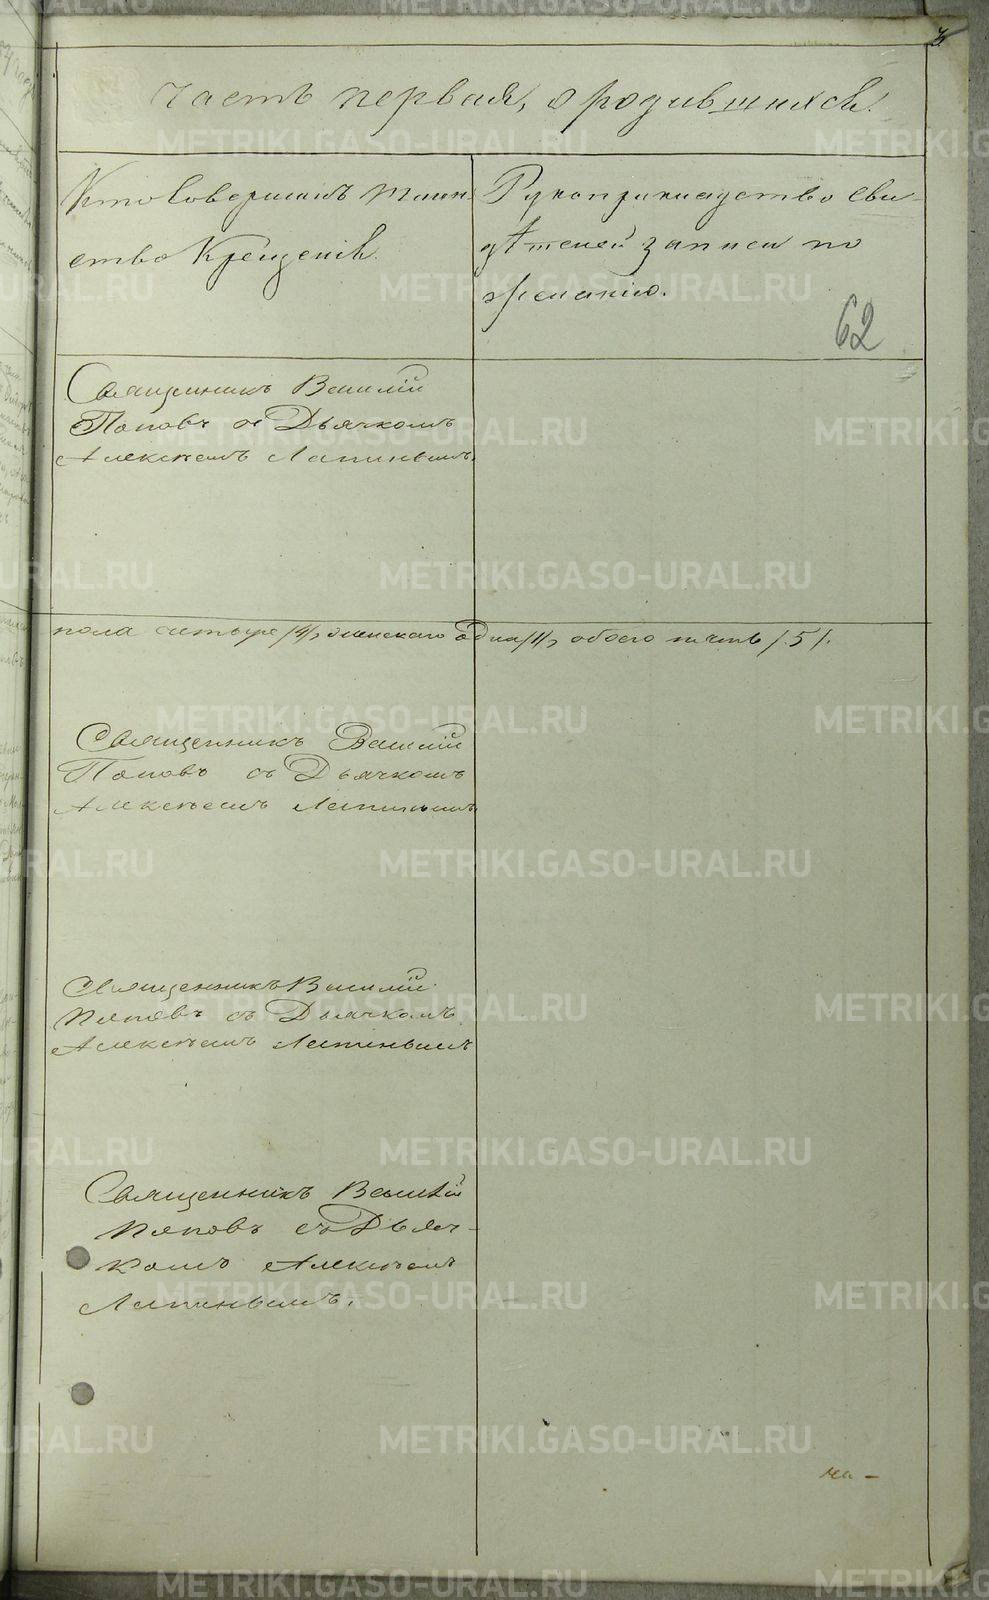 Часть первая, о родившихся.
Кто совершалъ таин-
ство Крещенія.
Рукоприкладство сви-
дѣтелей записи по
желанію.
62
Священникъ Василій
Поповъ съ Дьячкомъ
Алексѣемъ Лапинымъ.
пола четыре /4/, женскаго одна /1/, обоего пять /5/.
Священникъ Василій
Поповъ съ Дьячкомъ
Алексѣемъ Лапинымъ
Священникъ Василій
Поповъ съ Дьячкомъ
Алексѣемъ Лапинымъ
Священникъ Василій
Поповъ съ Дьяч-
комъ Алексѣемъ
Лапинымъ.
METRIKI.GASO-URAL.RU